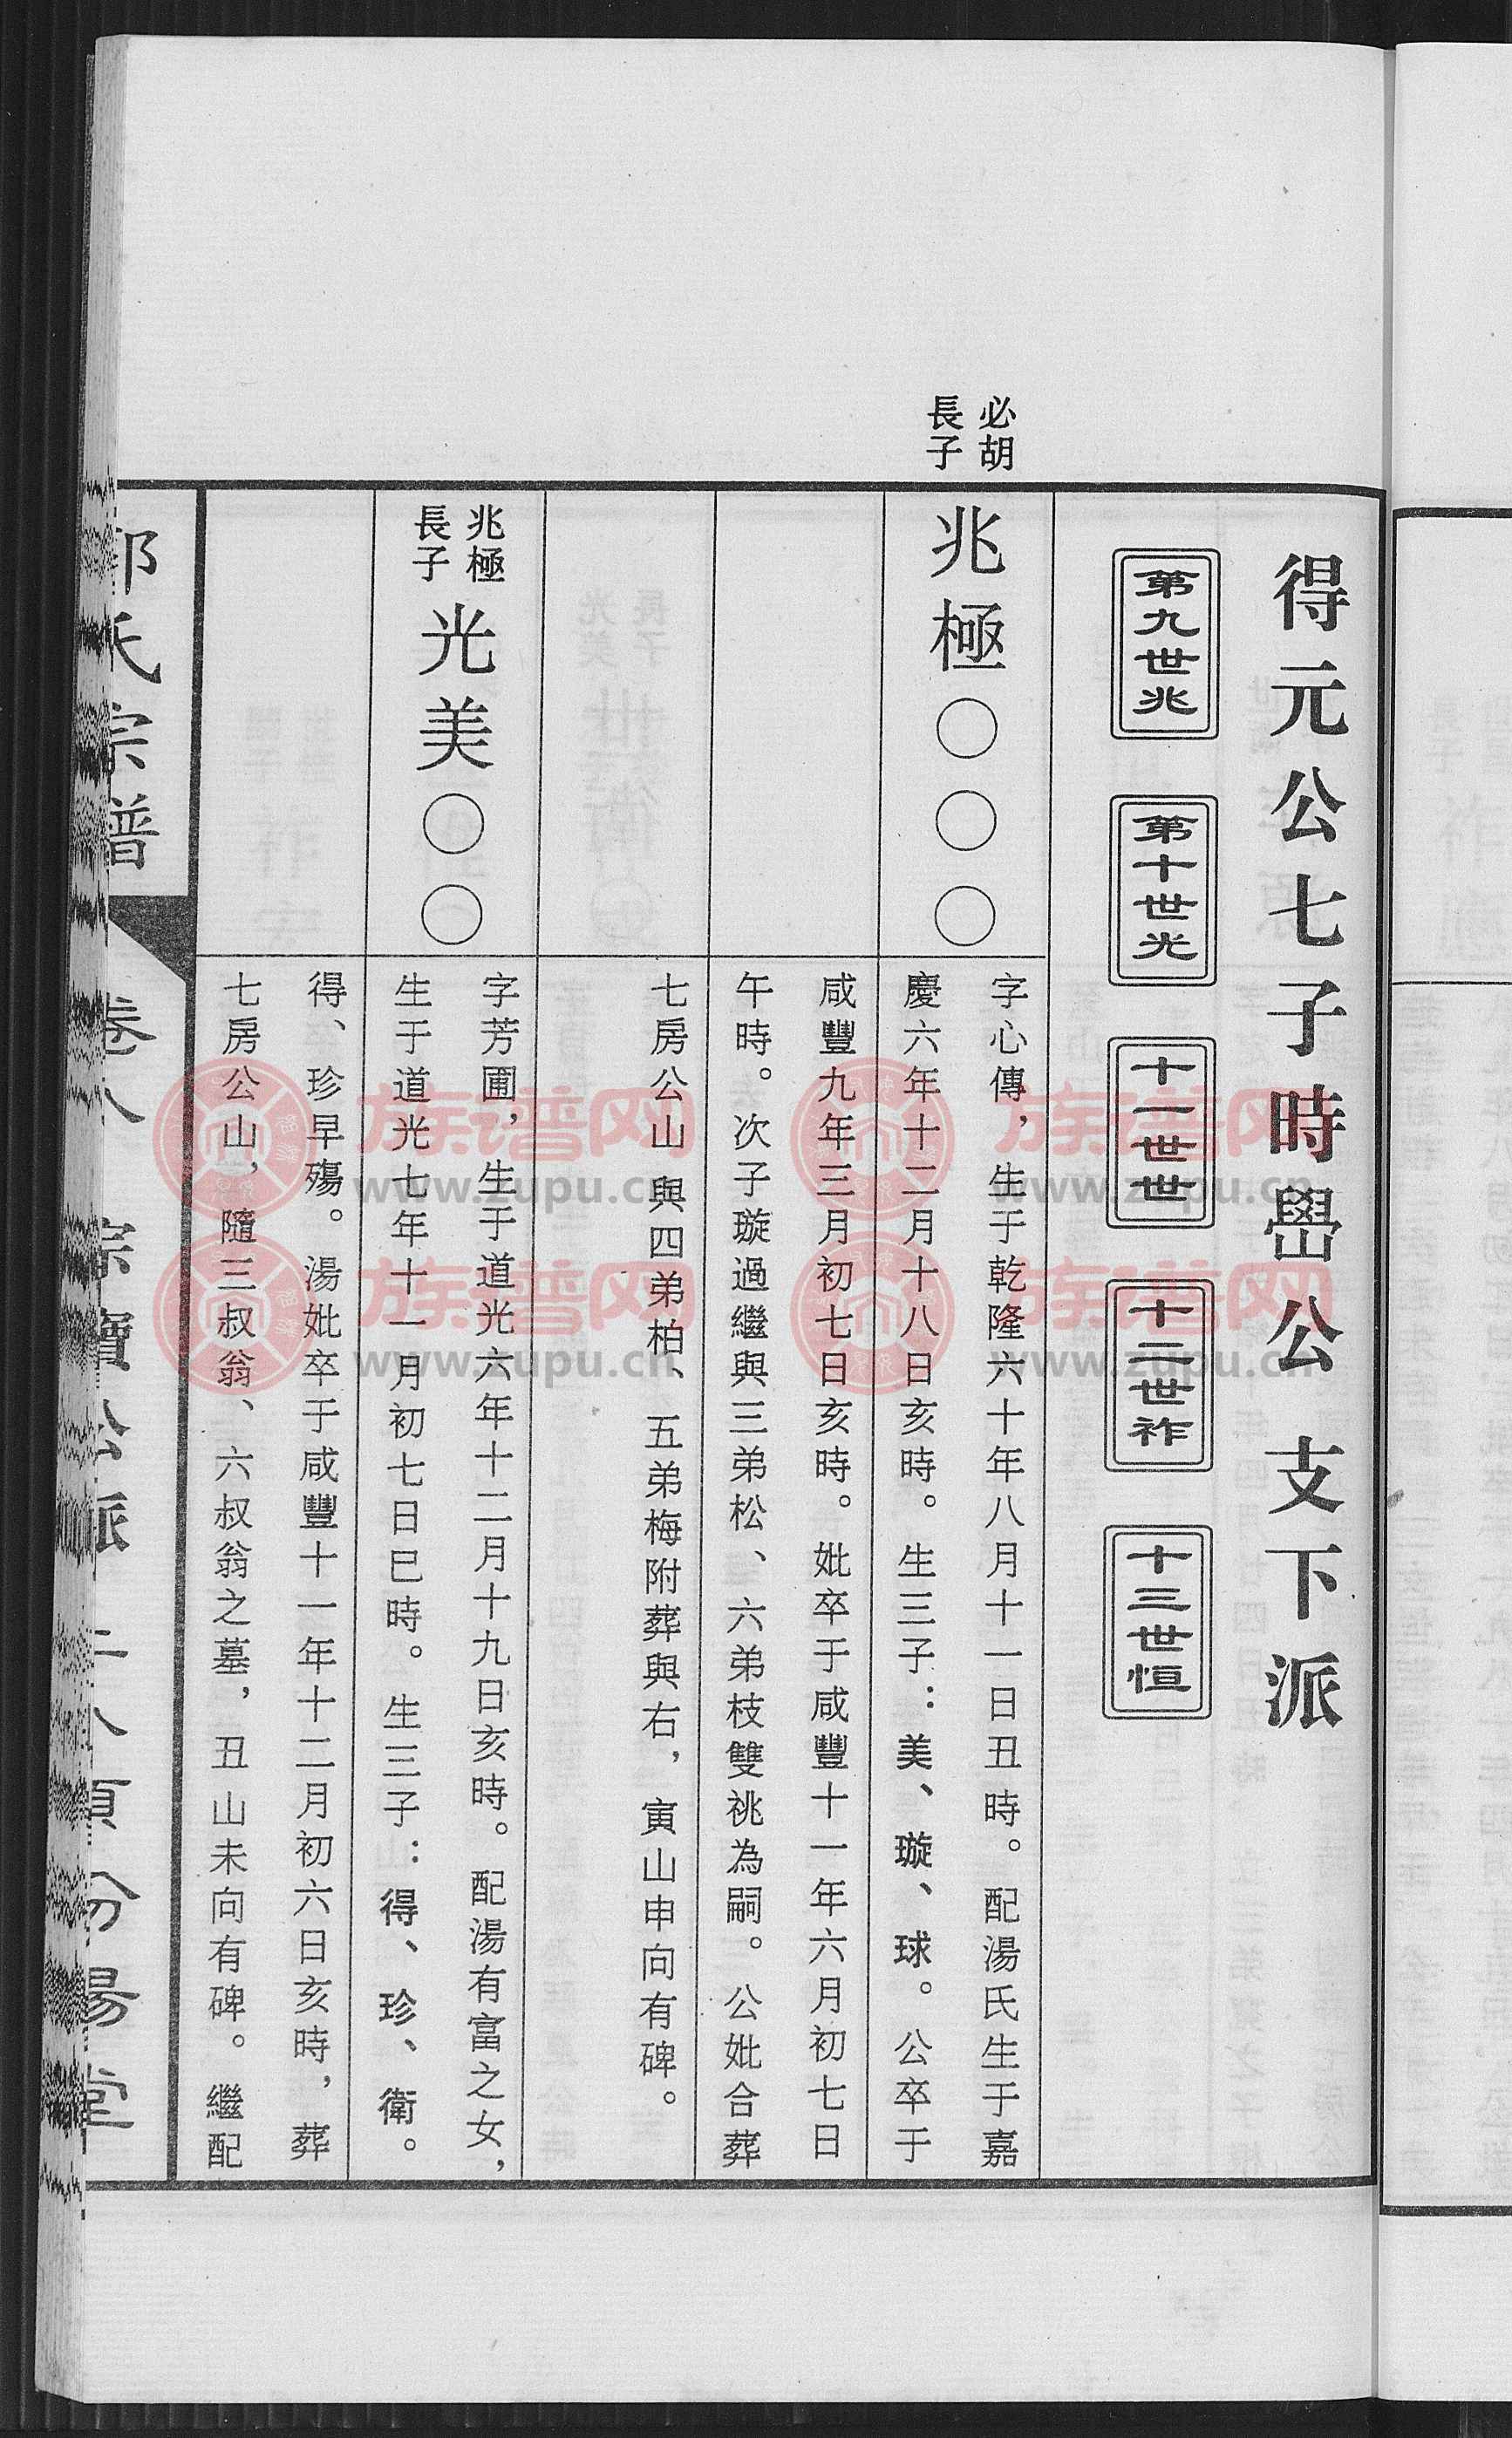 得元公七子時嶨公 支下派
第九世兆
第十世光
十一世世
十二世祚
十三世恒
必胡
長子
兆極○○○
字心傳，生于乾隆六十年八月十一日丑時。配湯氏生于嘉
慶六年十二月十八日亥時。生三子：美、璇、球。公卒于
咸豐九年三月初七日亥時。妣卒于咸豐十一年六月初七日
午時。次子璇過繼與三弟松、六弟枝雙祧為嗣。公妣合葬
七房公山與四弟柏、五弟梅附葬與右，寅山申向有碑。
兆極
長子
光美○○
字芳圃，生于道光六年十二月十九日亥時。配湯有富之女，
生于道光七年十一月初七日巳時。生三子：得、珍、衛。
得、珍早殤。湯妣卒于咸豐十一年十二月初六日亥時，葬
七房公山，隨三叔翁、六叔翁之墓，丑山未向有碑。繼配
氏宗譜
卷八
寶公派
汾陽堂
族谱网
www.zupu.cn
族谱网
www.zupu.cn
族谱网
www.zupu.cn
族谱网
www.zupu.cn